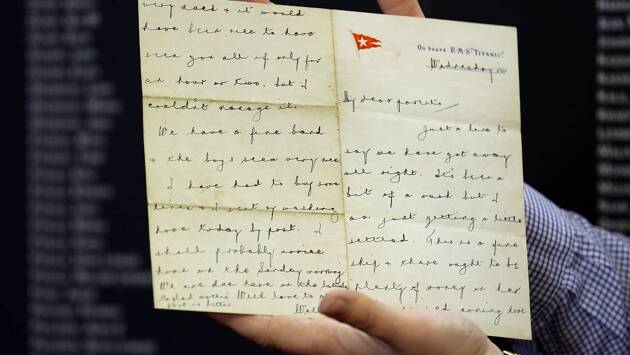 On board R.M.S. "TITANIC".
Wednesday 191
My dear parents,
Just a line to
say we have got away
all right. It's been a
bit of a rush but I
am just getting a little
settled. This is a fine
ship & there ought to be
plenty of money on her
missed coming home
very much & it would
have been nice to have
seen you all if only for
an hour or two, but I
couldn't manage it.
We have a fine band
& the boys seem very nice
I have had to buy some
linen & I sent my washing
home today by post. I
shall probably arrive
home on the Sunday morning
We are due here on the Saturday
So glad mother's With love to
foot is better.